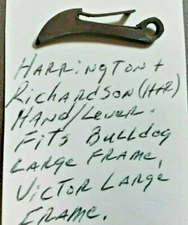 HARRINGTON +
RICHARDSON (H+R)
HAND/LEVER.
FITS BULLDOG
LARGE FRAME,
VICTOR LARGE
FRAME.